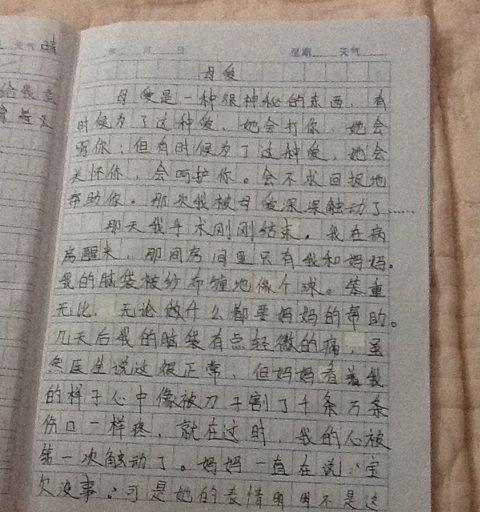 天气 晴
年 月 日 星期 天气
母爱
母爱是一种很神秘的东西，有
时候为了这种爱，她会打你，她会
骂你；但有时候为了这种爱，她会
关怀你，会呵护你。会不求回报地
帮助你。那次我被母爱深深触动了……
那天我手术刚刚结束。我在病
房醒来，那间房间里只有我和妈妈。
我的脑袋被纱布缠地像个球。笨重
无比，无论做什么都要妈妈的帮助。
几天后我的脑袋有点轻微的痛，虽
然医生说这很正常，但妈妈看着我
的样子心中像被刀子割了千条万条
伤口一样疼，就在这时，我的心被
第一次触动了。妈妈一直在说：宝
贝没事。可是她的表情明明不是这